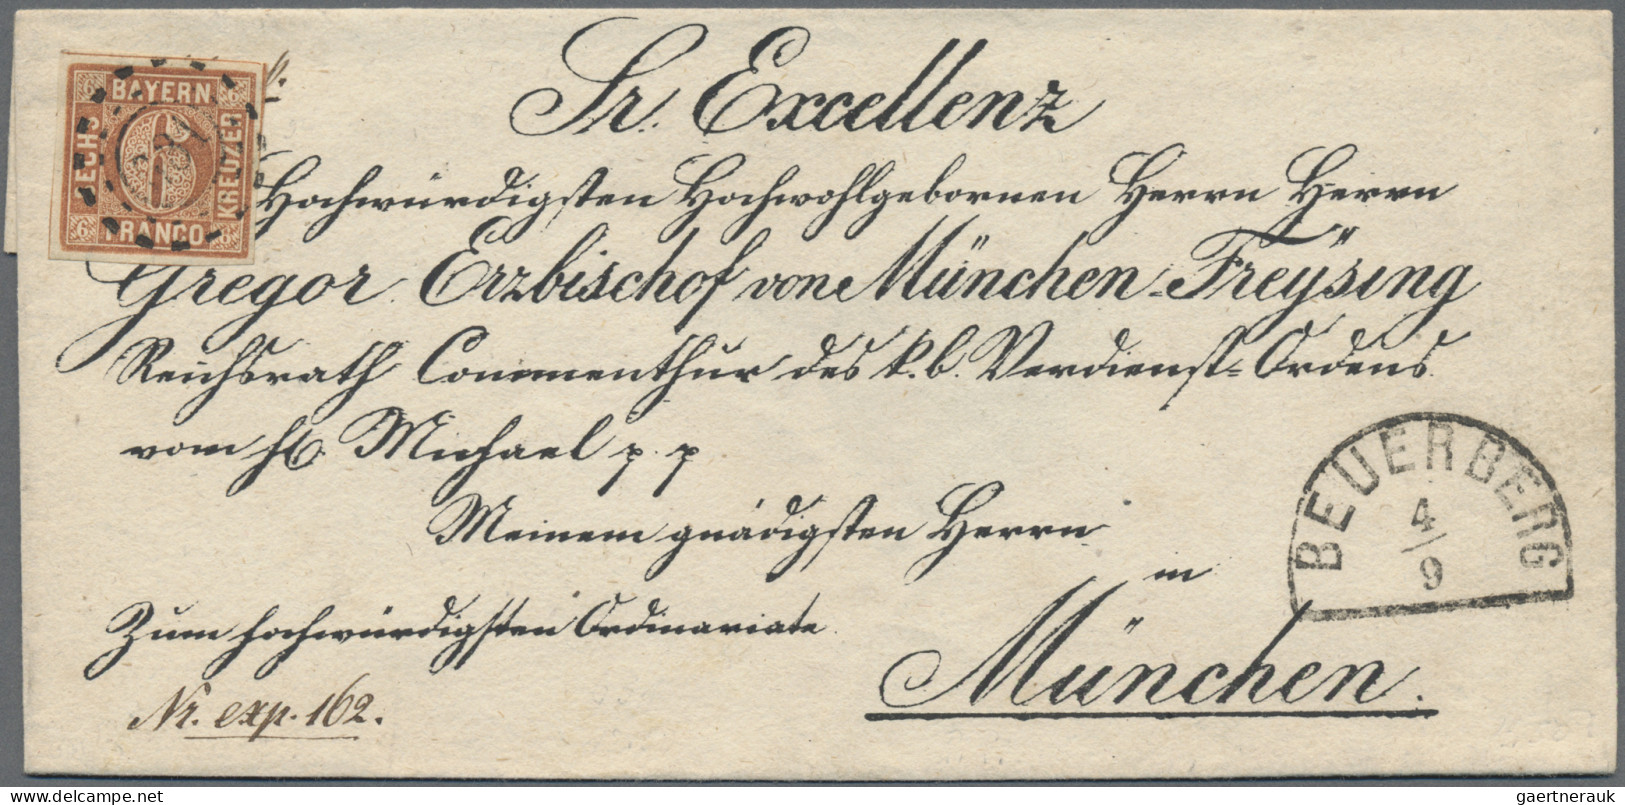 BAYERN
SECHS
KREUZER
FRANCO
6 6 6 6
6
Sr. Excellenz
Hochwürdigsten Hochwohlgebornen Herrn Herrn
Gregor Erzbischof von München-Freÿsing
Reichsrath Commenthur des k. b. Verdienst-Ordens
vom hl. Michael p. p
Meinem gnädigsten Herrn
in
München.
Zum hochwürdigsten Ordinariate
Nr. exp. 162.
BEUERBERG
4/9
delcampe.net
gaertnerauk